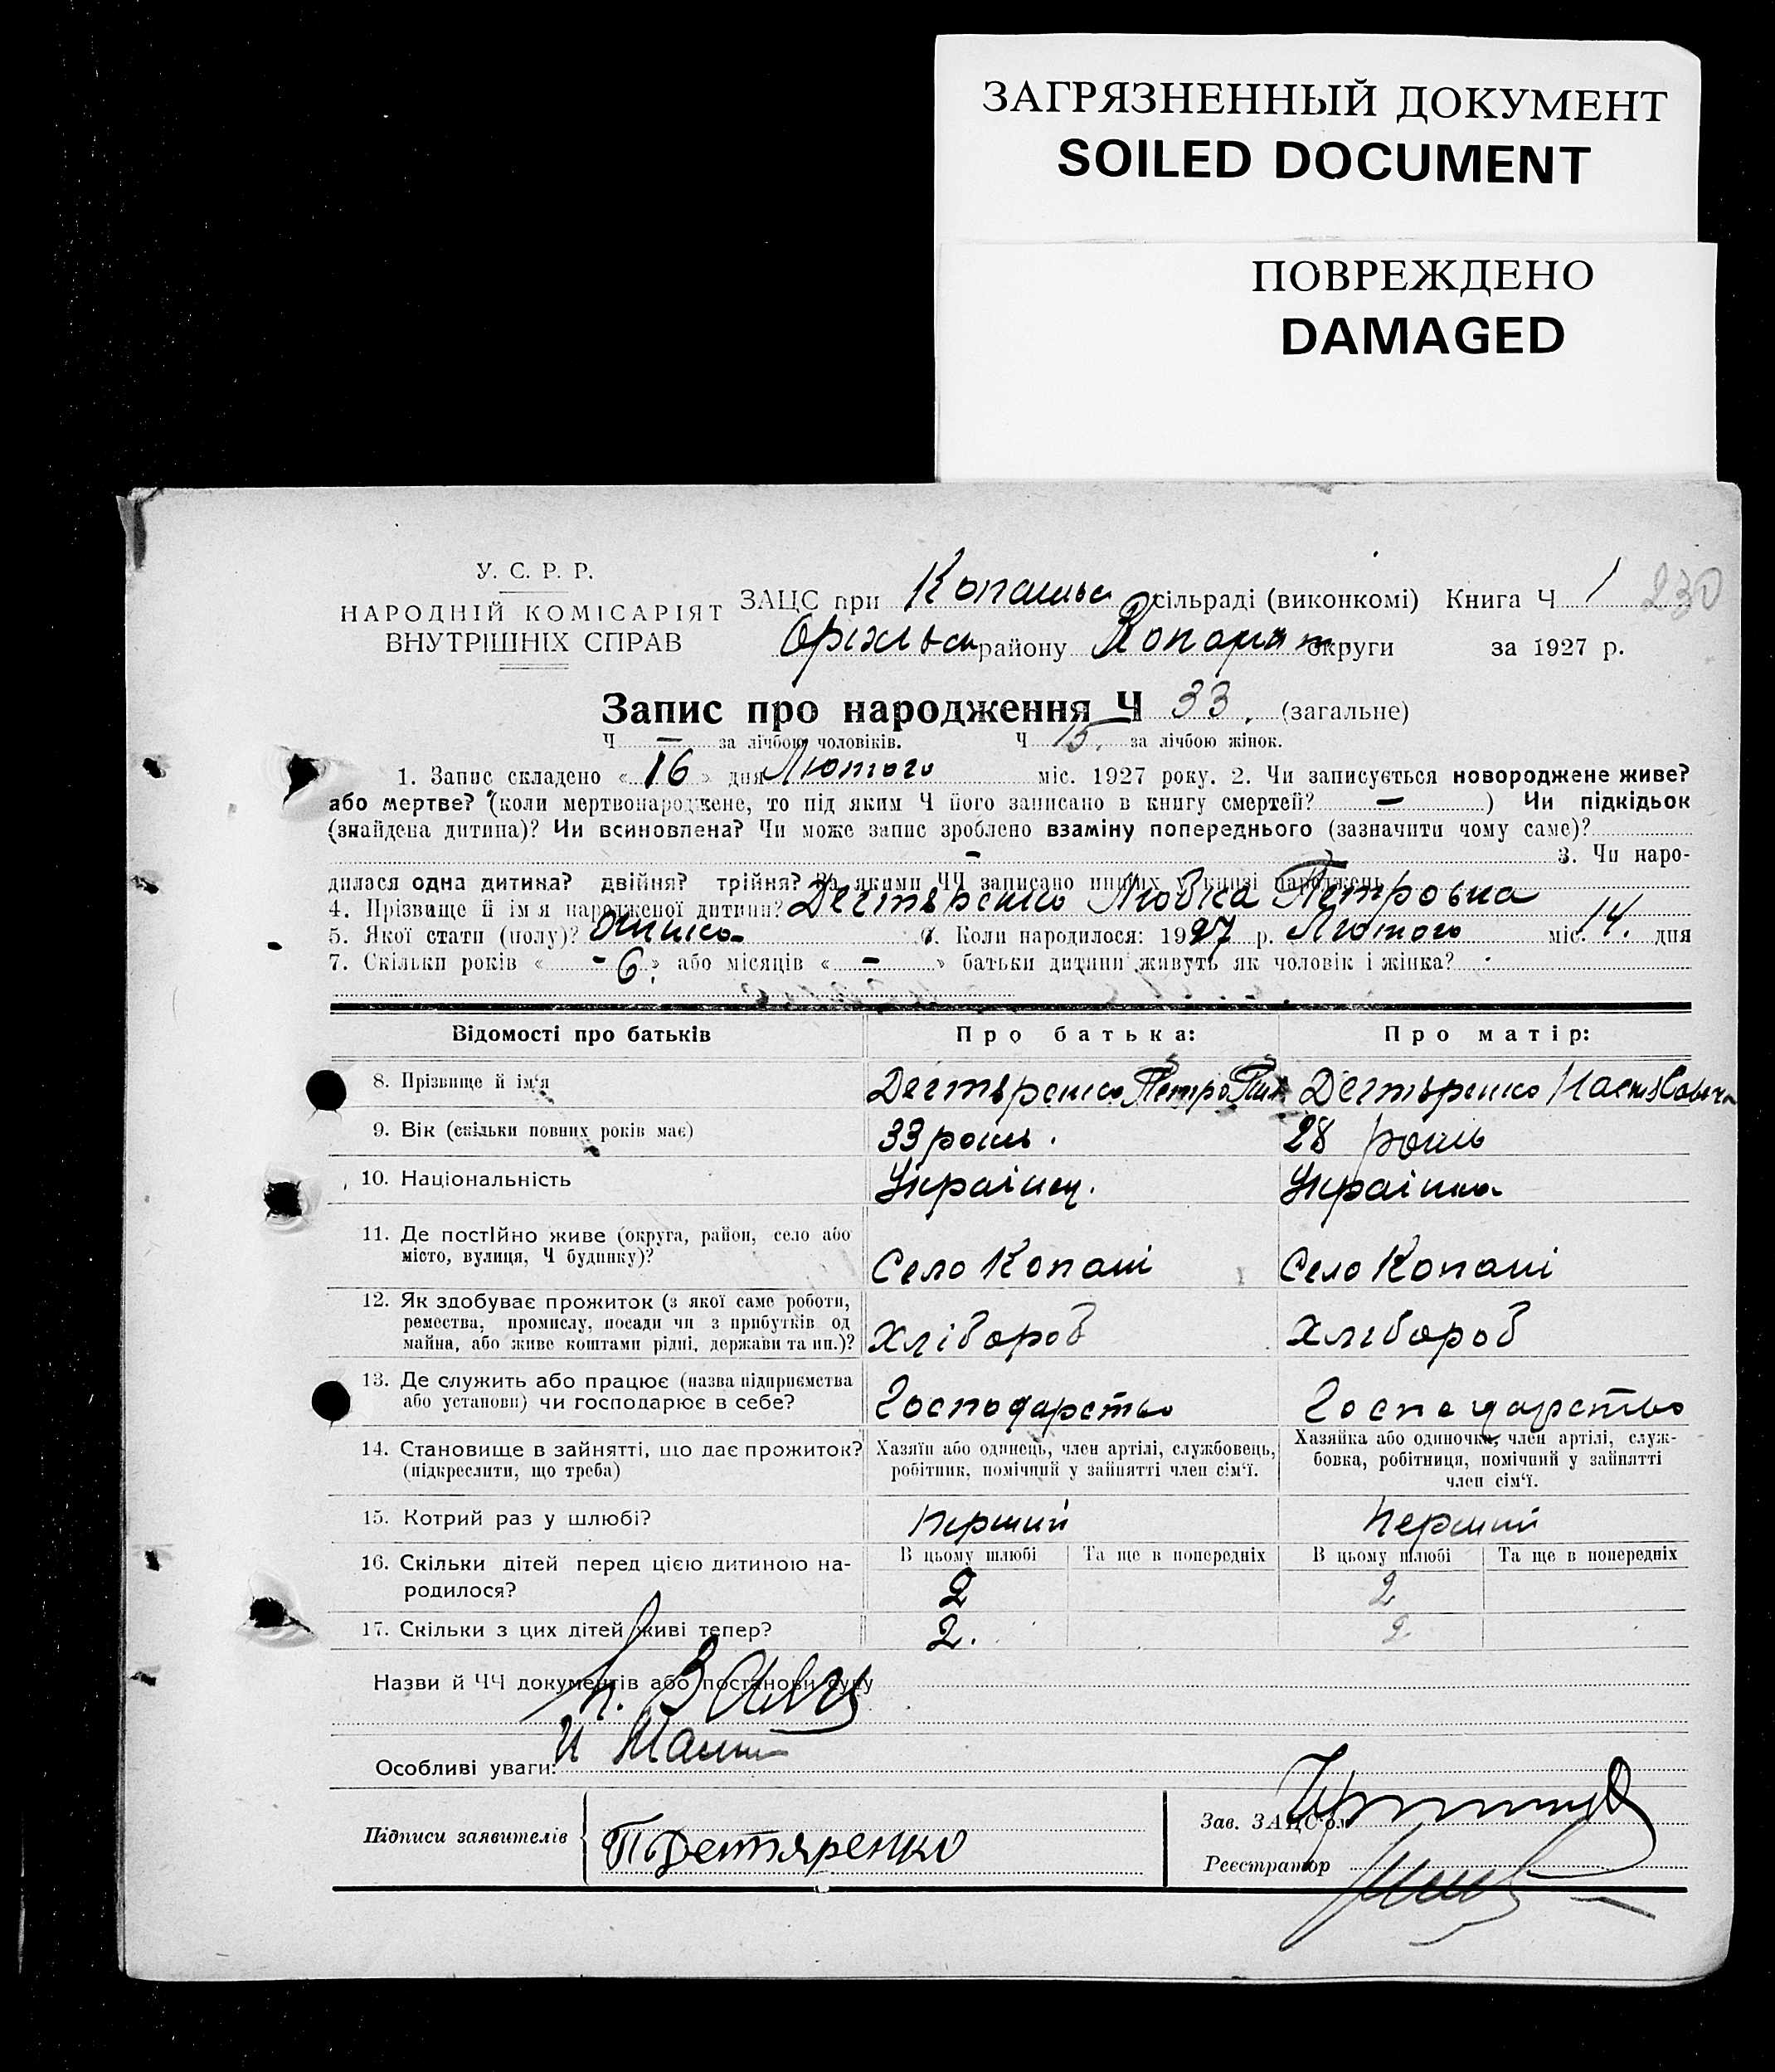 ЗАГРЯЗНЕННЫЙ ДОКУМЕНТ
SOILED DOCUMENT
ПОВРЕЖДЕНО
DAMAGED
У. С. Р. Р.
НАРОДНІЙ КОМІСАРІЯТ
ВНУТРІШНІХ СПРАВ
ЗАЦС при сільраді (виконкомі) Книга Ч 1 230
району округи за 1927 р.
Запис про народження Ч 33. (загальне)
Ч — за лічбою чоловіків. Ч 15. за лічбою жінок.
1. Запис складено « 16 » дня Лютого міс. 1927 року. 2. Чи записується новороджене живе?
або мертве? (коли мертвонароджене, то під яким Ч його записано в книгу смертей? — ) Чи підкідьок
(знайдена дитина)? Чи всиновлена? Чи може запис зроблено взаміну попереднього (зазначити чому саме)?
— 3. Чи наро-
дилася одна дитина? двійня? трійня? За якими ЧЧ записано инших у книзі народжень
4. Прізвище й ім'я народженої дитини? Петровна
5. Якої стати (полу)? 6. Коли народилося: 1927 р. Лютого міс. 14. дня
7. Скільки років « - 6. » або місяців « — » батьки дитини живуть як чоловік і жінка? -
Відомості про батьків
Про батька:
Про матір:
8. Прізвище й ім'я
Петро
9. Вік (скільки повних років має)
33 років.
28 років
10. Національність
Українец.
Українка
11. Де постійно живе (округа, район, село або
місто, вулиця, Ч будинку)?
Село Копані
Село Копані
12. Як здобуває прожиток (з якої саме роботи,
ремества, промислу, посади чи з прибутків од
майна, або живе коштами рідні, держави та ин.)?
Хлібороб
Хлібороб
13. Де служить або працює (назва підприємства
або установи) чи господарює в себе?
Господарство
Господарство
14. Становище в зайнятті, що дає прожиток?
(підкреслити, що треба)
Хазяїн або одинець, член артілі, службовець,
робітник, помічний у зайнятті член сім'ї.
Хазяйка або одиночка, член артілі, служ-
бовка, робітниця, помічний у зайнятті
член сім'ї.
15. Котрий раз у шлюбі?
перший
перший
16. Скільки дітей перед цією дитиною на-
родилося?
В цьому шлюбі Та ще в попередніх В цьому шлюбі Та ще в попередніх
2
2
17. Скільки з цих дітей живі тепер?
2.
2.
Назви й ЧЧ документів або постанови суду
Особливі уваги:
Підписи заявителів
Зав. ЗАЦС'ом
Реєстратор